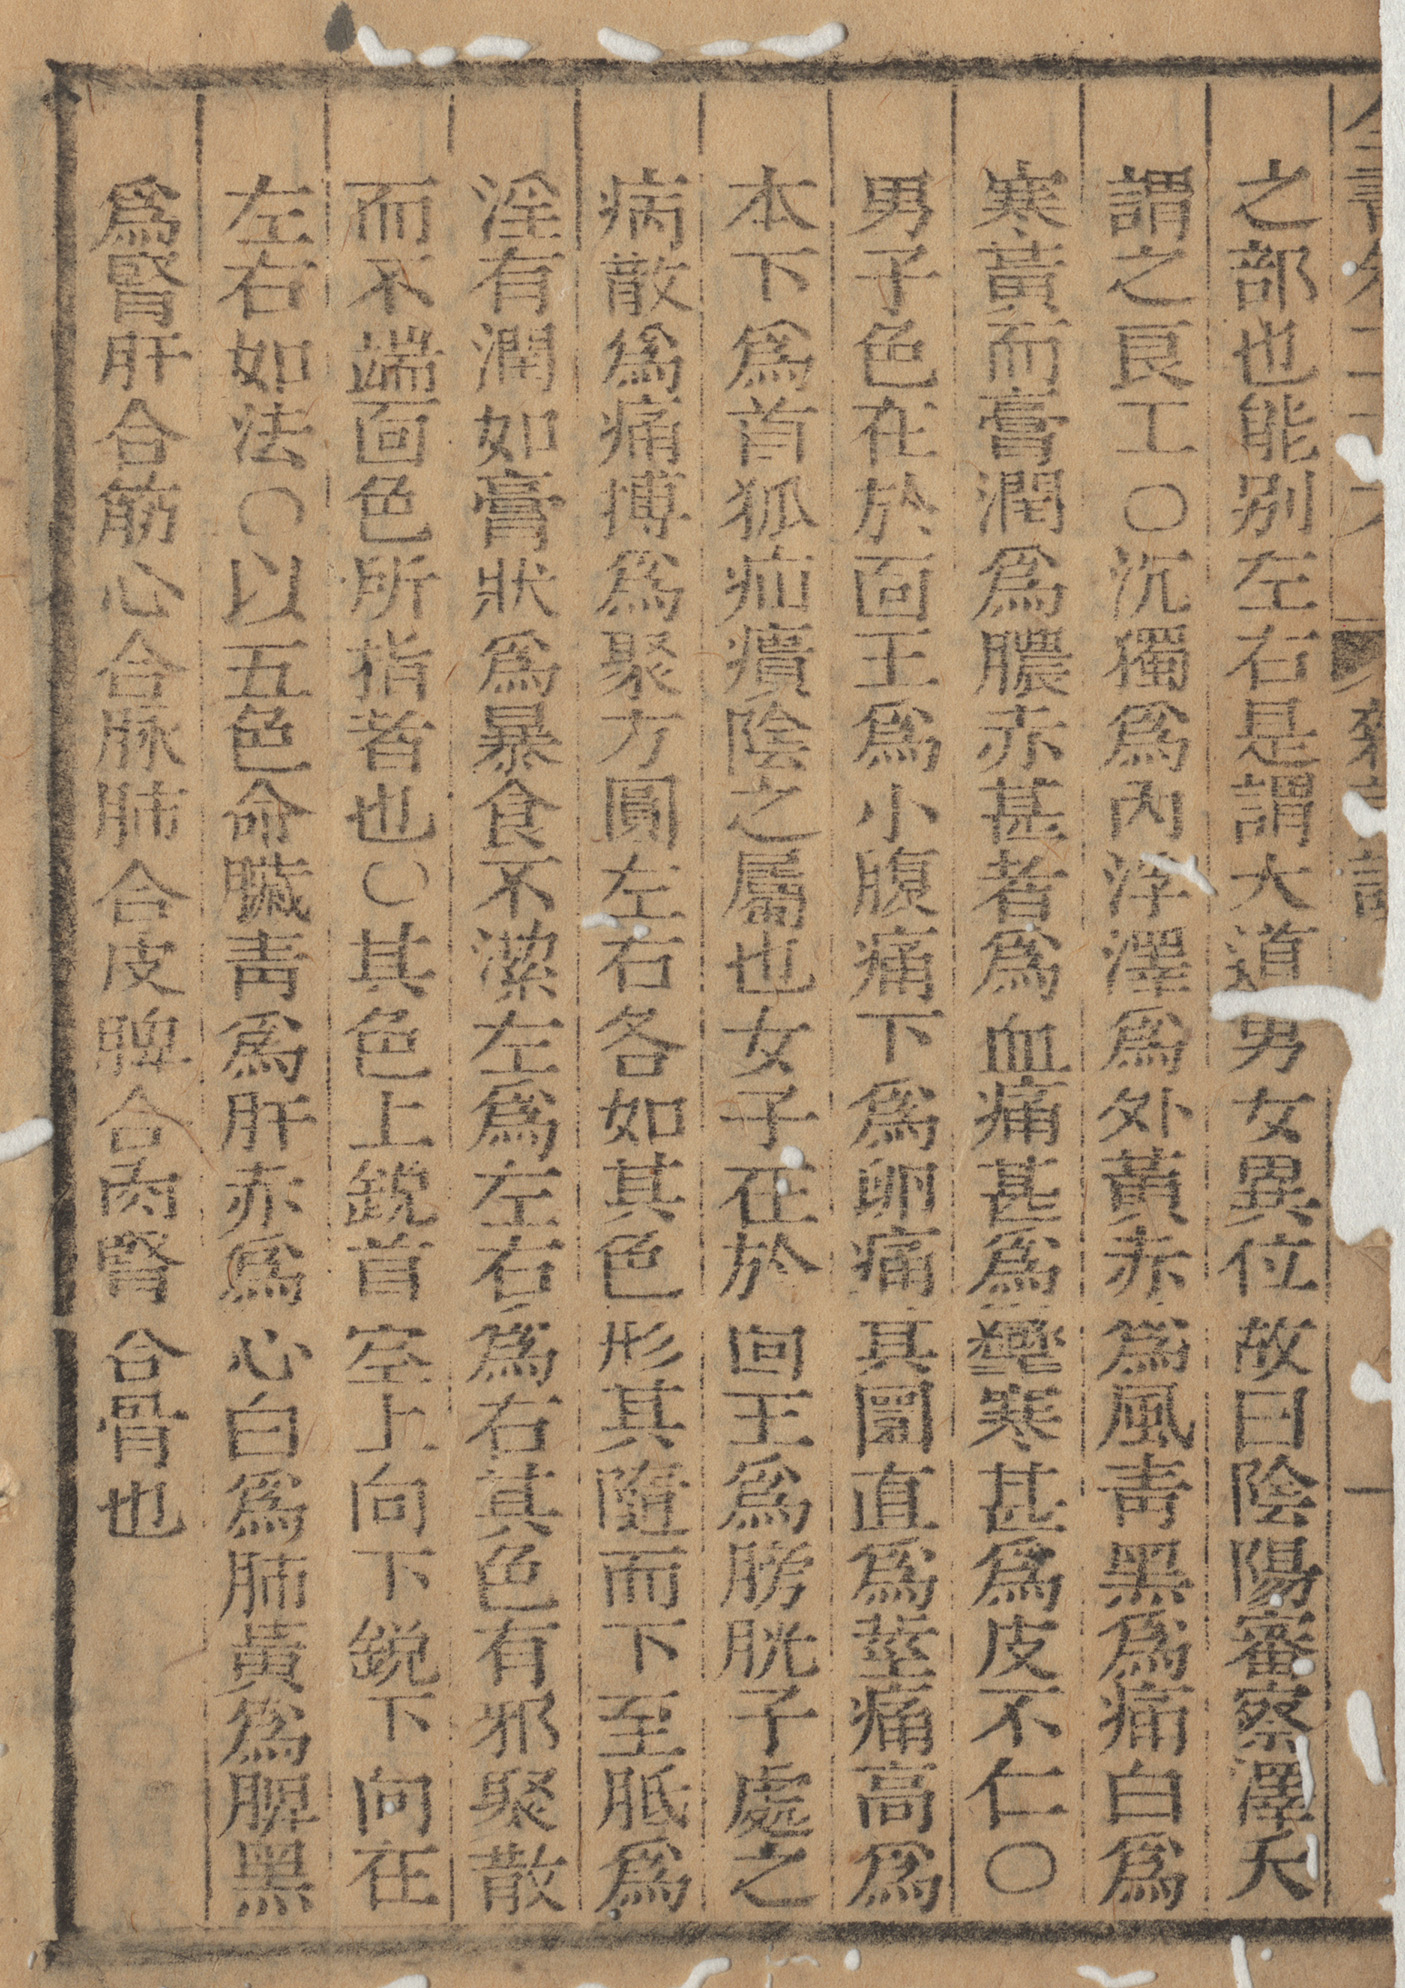 之部也能別左右是謂大道男女異位故曰陰陽審察澤夭
謂之良工○沉獨爲內浮澤爲外黃赤爲風靑黑爲痛白爲
寒黃而膏潤爲膿赤甚者爲血痛甚爲攣寒甚爲皮不仁○
男子色在於面王爲小腹痛下爲卵痛其圜直爲莖痛高爲
本下爲首狐疝㿉陰之屬也女子在於面王爲膀胱子處之
病散爲痛摶爲聚方圓左右各如其色形其隨而下至胝爲
淫有潤如膏狀爲暴食不潔左爲左右爲右其色有邪聚散
而不端面色所指者也○其色上銳首空上向下銳下向在
左右如法○以五色命臟靑爲肝赤爲心白爲肺黃爲脾黑
爲腎肝合筋心合脉肺合皮脾合肉腎合骨也